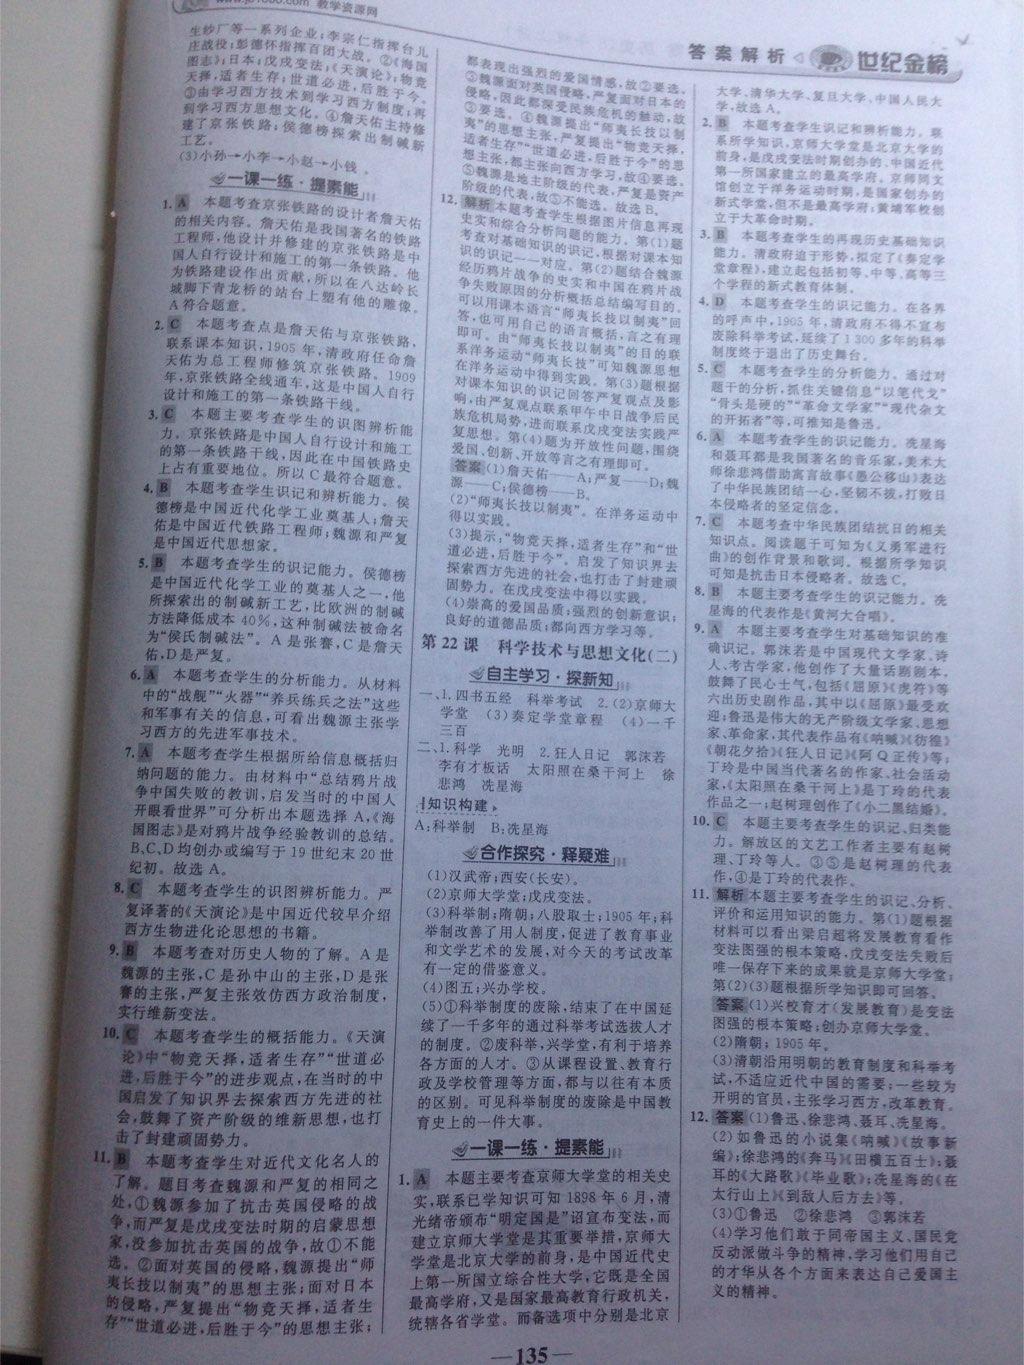 www.jb1000.com 教学资源网
答案解析 世纪金榜
生纱厂等一系列企业;李宗仁指挥台儿
庄战役;彭德怀指挥百团大战。②《海国
图志》;日本;戊戌变法;《天演论》;物竞
天择,适者生存;世道必进,后胜于今。
③由学习西方技术到学习西方制度;再
到学习西方思想文化。④詹天佑主持修
建了京张铁路;侯德榜探索出制碱新
工艺。
(3)小孙→小李→小赵→小钱。
一课一练·提素能
1.A 本题考查京张铁路的设计者詹天佑
的相关内容。詹天佑是我国著名的铁路
工程师,他设计并修建的京张铁路是中
国人自行设计和施工的第一条铁路。他
为铁路建设作出贡献,所以在八达岭长
城脚下青龙桥的站台上塑有他的雕像。
A符合题意。
2.C 本题考查点是詹天佑与京张铁路,
联系课本知识,1905年,清政府任命詹
天佑为总工程师修筑京张铁路。1909
年,京张铁路全线通车,这是中国人自行
设计和施工的第一条铁路干线。
3.C 本题主要考查学生的识图辨析能
力。京张铁路是中国人自行设计和施工
的第一条铁路干线,因此在中国铁路史
上占有重要地位。所以C最符合题意。
4.B 本题考查学生识记和辨析能力。侯
德榜是中国近代化学工业奠基人;詹天
佑是中国近代铁路工程师;魏源和严复
是中国近代思想家。
5.B 本题考查学生的识记能力。侯德榜
是中国近代化学工业的奠基人之一,他
所探索出的制碱新工艺,比欧洲的制碱
方法降低成本40%,这种制碱法被命名
为“侯氏制碱法”。A是张謇,C是詹天
佑,D是严复。
6.A 本题考查学生的分析能力。从材料
中的“战舰”“火器”“养兵练兵之法”这些
和军事有关的信息,可看出魏源主张学
习西方的先进军事技术。
7.A 本题考查学生根据所给信息概括归
纳问题的能力。由材料中“总结鸦片战
争中国失败的教训,启发当时的中国人
开眼看世界”可分析出本题选择A,《海
国图志》是对鸦片战争经验教训的总结。
B、C、D均创办或编写于19世纪末20世
纪初。故选A。
8.C 本题考查学生的识图辨析能力。严
复译著的《天演论》是中国近代较早介绍
西方生物进化论思想的书籍。
9.B 本题考查对历史人物的了解。A是
魏源的主张,C是孙中山的主张,D是张
謇的主张,严复主张效仿西方政治制度,
实行维新变法。
10.C 本题考查学生的概括能力。《天演
论》中“物竞天择,适者生存”“世道必
进,后胜于今”的进步观点,在当时的中
国启发了知识界去探索西方先进的社
会,鼓舞了资产阶级的维新思想,也打
击了封建顽固势力。
11.B 本题考查学生对近代文化名人的
了解。题目考查魏源和严复的相同之
处,①魏源参加了抗击英国侵略的战
争,而严复是戊戌变法时期的启蒙思想
家,没参加抗击英国的战争,故①不能
选。②面对英国的侵略,魏源提出“师
夷长技以制夷”的思想主张;面对日本
的侵略,严复提出“物竞天择,适者生
存”“世道必进,后胜于今”的思想主张;
都表现出强烈的爱国情感,故②要选。
③魏源面对英国侵略,严复面对日本的
侵略,因此都深受民族危机的触动,故
③要选。④魏源提出“师夷长技以制
夷”的思想主张,严复提出“物竞天择,
适者生存”“世道必进,后胜于今”的思
想主张,都主张向西方学习,故④要选。
⑤魏源是地主阶级的代表,严复是资产
阶级的代表,故⑤不能选。故选B。
12.解析 本题考查学生根据图片信息再现
史实和综合分析问题的能力。第(1)题
考查对基础知识的识记,根据对课本知
识的识记一一对应。第(2)题结合魏源
经历鸦片战争的史实和中国在鸦片战
争失败原因的分析概括总结编写目的。
可以用课本语言“师夷长技以制夷”回
答,也可用自己的语言概括,言之有理
即可。由“师夷长技以制夷”的目的联
系洋务运动“师夷长技”可知魏源思想
在洋务运动中得到实践。第(3)题根据
对课本知识的识记回答严复观点及影
响,由严复观点联系甲午中日战争后民
族危机局势,进而联系戊戌变法实践严
复思想。第(4)题为开放性问题,围绕
爱国、创新、开放等言之有理即可。
答案 (1)詹天佑——A;严复——D;魏
源——C;侯德榜——B。
(2)“师夷长技以制夷”。在洋务运动中
得以实践。
(3)提示:“物竞天择,适者生存”和“世
道必进,后胜于今”。启发了知识界去
探索西方先进的社会,也打击了封建顽
固势力。在戊戌变法中得以实践。
(4)崇高的爱国品质;强烈的创新意识;
良好的道德品质;都向西方学习等。
第22课 科学技术与思想文化(二)
自主学习·探新知
一、1.四书五经 科举考试 2.(2)京师大
学堂 (3)奏定学堂章程 (4)一千
三百
二、1.科学 光明 2.狂人日记 郭沫若
李有才板话 太阳照在桑干河上 徐
悲鸿 冼星海
知识构建
A:科举制 B:冼星海
合作探究·释疑难
(1)汉武帝;西安(长安)。
(2)京师大学堂;戊戌变法。
(3)科举制;隋朝;八股取士;1905年;科
举制改善了用人制度,促进了教育事业
和文学艺术的发展,对今天的考试改革
有一定的借鉴意义。
(4)图五;兴办学校。
(5)①科举制度的废除,结束了在中国延
续了一千多年的通过科举考试选拔人才
的制度。②废科举,兴学堂,有利于培养
各方面的人才。③从课程设置、教育行
政及学校管理等方面,都与以往有本质
的区别。可见科举制度的废除是中国教
育史上的一件大事。
一课一练·提素能
1.A 本题主要考查京师大学堂的相关史
实,联系已学知识可知1898年6月,清
光绪帝颁布“明定国是”诏宣布变法,而
建立京师大学堂是其重要举措,京师大
学堂是北京大学的前身,是中国近代史
上第一所国立综合性大学,它既是全国
最高学府,又是国家最高教育行政机关,
统辖各省学堂。而备选项中分别是北京
大学、清华大学、复旦大学、中国人民大
学,故选A。
2.B 本题考查学生识记和辨析能力。联
系所学知识,京师大学堂是北京大学的
前身,是戊戌变法时期创办的、中国近代
第一所国家建立的最高学府。京师同文
馆创立于洋务运动时期,是国家创办的
新式学堂,但不是最高学府;黄埔军校创
立于大革命时期。
3.B 本题考查学生的再现历史基础知识
能力。清政府迫于形势,拟定了《奏定学
堂章程》,建立起包括初等、中等、高等三
个学程的新式教育体制。
4.D 本题考查学生的识记能力。在各界
的呼声中,1905年,清政府不得不宣布
废除科举考试,延续了1300多年的科举
制度终于退出了历史舞台。
5.C 本题考查学生的分析能力。通过对
题干的分析,抓住关键信息“以笔代戈”
“骨头是硬的”“革命文学家”“现代杂文
的开拓者”等,可推知是鲁迅。
6.A 本题考查学生的识记能力。冼星海
和聂耳都是我国著名的音乐家,美术大
师徐悲鸿借助寓言故事《愚公移山》表达
了中华民族团结一心,坚韧不拔,打败日
本侵略者的坚定信念。
7.C 本题考查中华民族团结抗日的相关
知识点。阅读题干可知为《义勇军进行
曲》的创作背景和歌词。根据所学知识
可知是抗击日本侵略者。故选C。
8.B 本题考查学生的识记能力。冼
星海的代表作是《黄河大合唱》。
9.A 本题主要考查学生对基础知识的准
确识记。郭沫若是中国现代文学家、诗
人、考古学家,他创作了大量话剧剧本,
鼓舞了民心士气,包括《屈原》《虎符》等
六出历史剧作品,其中以《屈原》最受欢
迎;鲁迅是伟大的无产阶级文学家、思想
家、革命家,其代表作品有《呐喊》《彷徨》
《朝花夕拾》《狂人日记》《阿Q正传》等;
丁玲是中国当代著名的作家、社会活动
家,《太阳照在桑干河上》是丁玲的代表
作品之一;赵树理创作了《小二黑结婚》。
10.C 本题主要考查学生的识记、归类能
力。解放区的文艺工作者主要有赵树
理、丁玲等人。③⑤是赵树理的代表
作,④是丁玲的代表作。
11.解析 本题主要考查学生的识记、分析、
评价和运用知识的能力。第(1)题根据
材料可以看出梁启超将发展教育看作
变法图强的根本策略,戊戌变法失败后
唯一保存下来的成果就是京师大学堂;
第(2)(3)题根据所学知识即可回答。
答案 (1)兴校育才(发展教育)是变法
图强的根本策略;创办京师大学堂。
(2)隋朝;1905年。
(3)清朝沿用明朝的教育制度和科举考
试,不适应近代中国的需要;一些较为
开明的官员,主张学习西方,改革教育。
12.答案 (1)鲁迅、徐悲鸿、聂耳、冼星海。
(2)如鲁迅的小说集《呐喊》《故事新
编》;徐悲鸿的《奔马》《田横五百士》;聂
耳的《大路歌》《毕业歌》;冼星海的《在
太行山上》《到敌人后方去》等。
(3)①鲁迅 ②徐悲鸿 ③郭沫若
(4)学习他们敢于同帝国主义、国民党
反动派做斗争的精神,学习他们用自己
的才华从各个方面来表达自己爱国主
义的精神。
—135—